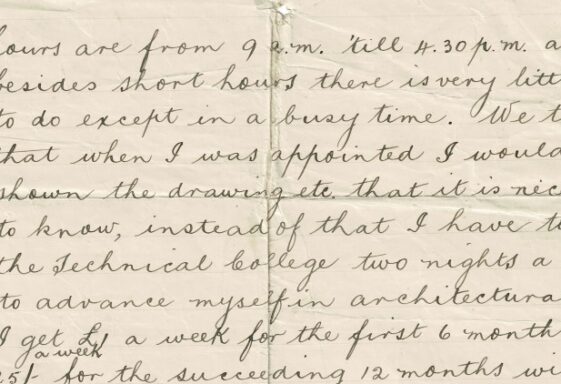 hours are from 9 a.m. 'till 4.30 p.m. a
besides short hours there is very litt
to do except in a busy time. We t
that when I was appointed I would
shown the drawing etc. that it is nec
to know, instead of that I have t
the Technical College two nights a
to advance myself in architectura
I get £1 a week for the first 6 month
a week
25/- for the succeeding 12 months wi